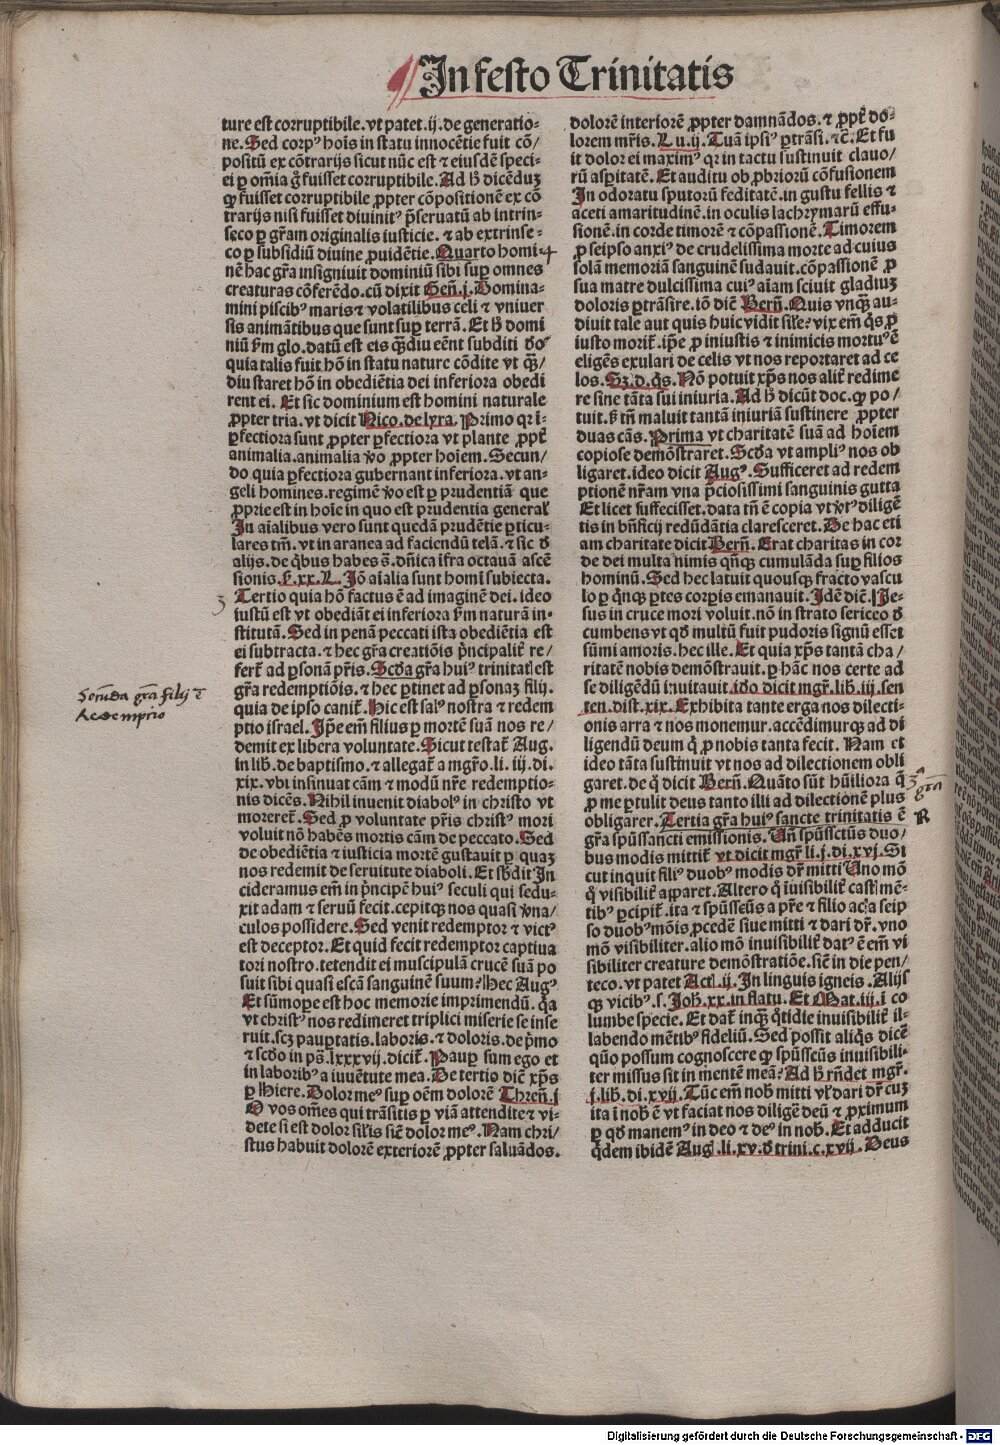 In festo Trinitatis
ture est corruptibile. vt patet .ij. de generatio-
ne. Sed corpꝰ hoīs in statu innocētie fuit cō/
positū ex cōtrarijs sicut nūc est ⁊ eiusdē speci-
ei ꝑ om̄ia g̃ fuisset corruptibile. Ad ħ dicēduꝫ
ꝙ fuisset corruptibile ꝓpter cōpositionē ex cō
trarijs nisi fuisset diuinitꝰ p̄seruatū ab intrin-
seco ꝑ gr̄am originalis iusticie. ⁊ ab extrinse-
co ꝑ subsidiū diuine ꝓuidētie. Quarto homi- 4
nē hac gr̄a insigniuit dominiū sibi suꝑ omnes
creaturas cōferēdo. cū dixit Geñ. j. Domina-
mini piscibꝰ maris ⁊ volatilibus celi ⁊ vniuer
sis animātibus que sunt suꝑ terrā. Et ħ domi
niū ẜm glo. datū est eis q̄ꝫdiu eēnt subditi ꝺoꝰ
quia talis fuit hō in statu nature cōdite vt q̄ꝫ/
diu staret hō in obediētia dei inferiora obedi
rent ei. Et sic dominium est homini naturale
ꝓpter tria. vt dicit Nico. de lyra. Primo qꝛ ī-
ꝑfectiora sunt ꝓpter ꝑfectiora vt plante ꝓpt̄
animalia. animalia ꝟo ꝓpter hoīem. Secun/
do quia ꝑfectiora gubernant inferiora. vt an-
geli homines. regimē ꝟo est ꝑ prudentiā que
ꝓprie est in hoīe in quo est prudentia general̓
In aīalibus vero sunt quedā prudētie ꝑticu-
lares tm̄. vt in aranea ad faciendū telā. ⁊ sic ꝺ
alijs. de q̇bus habes s̄. dn̄ica īfra octauā ascē
sionis. ẜ. xx. L. Iō aīalia sunt homī subiecta.
3 Tertio quia hō factus ē ad imaginē dei. ideo
iustū est vt obediāt ei inferiora ẜm naturā in-
stitutā. Sed in penā peccati ista obediētia est
ei subtracta. ⁊ hec gr̄a creatiōis p̄ncipalit̓ re/
fert̓ ad ꝑsonā pr̄is. Scd̓a gr̄a huiꝰ trinitat̓ est
gr̄a redemptiōis. ⁊ hec ꝑtinet ad ꝑsonaꝫ filij.
Secūda gr̄a filij ē
Redemptio
quia de ipso canit̓. Hic est salꝰ nostra ⁊ redem
ptio israel. Ip̄e em̄ filius ꝑ mortē suā nos re/
demit ex libera voluntate. Sicut testat̓ Aug.
in lib. de baptismo. ⁊ allegat̓ a mgr̄o. li. iij. di.
xix. vbi insinuat cām ⁊ modū nr̄e redemptio-
nis dicēs. Nihil inuenit diabolꝰ in christo vt
moreret̓. Sed ꝓ voluntate pr̄is christꝰ mori
voluit nō habēs mortis cām de peccato. Sed
de obediētia ⁊ iusticia mortē gustauit ꝑ quaꝫ
nos redemit de seruitute diaboli. Et sb̄dit In
cideramus em̄ in p̄ncipē huiꝰ seculi qui sedu-
xit adam ⁊ seruū fecit. cepitꝙ nos quasi ꝟna/
culos possidere. Sed venit redemptor ⁊ victꝰ
est deceptor. Et quid fecit redemptor captiua
tori nostro. tetendit ei muscipulā crucē suā po
suit sibi quasi escā sanguinē suum? Hec Augꝰ
Et sūmope est hoc memorie imprimendū. q̇a
vt christꝰ nos redimeret triplici miserie se inse
ruit. scꝫ pauꝑtatis. laboris. ⁊ doloris. de p̄mo
⁊ scd̓o in ps̄. lxxxvij. dicit̓. Pauꝑ sum ego et
in laboribꝰ a iuuētute mea. De tertio diē xp̄s
ꝑ Hiere. Dolor meꝰ suꝑ oēm dolorē Threñ. j
O vos om̄es qui trāsitis ꝑ viā attendite ⁊ vi-
dete si est dolor sil̓is sic̄ dolor meꝰ. Nam chri/
stus habuit dolorē exteriorē ꝓpter saluādos.
dolorē interiorē ꝓpter damnādos. ⁊ ꝓpt̄ do-
lorem mr̄is. Lu. ij. Tuā ipsiꝰ ꝑtrāsi. ⁊c̄. Et fu
it dolor ei maximꝰ qꝛ in tactu sustinuit clauo/
rū asꝑitatē. Et auditu obꝓbriorū cōfusionem
In odoratu sputorū feditatē. in gustu fellis ⁊
aceti amaritudinē. in oculis lachrymarū effu-
sionē. in corde timorē ⁊ cōpassionē. Timorem
ꝓ seipso anxiꝰ de crudelissima morte ad cuius
solā memoriā sanguinē sudauit. cōpassionē ꝓ
sua matre dulcissima cuiꝰ aīam sciuit gladiuꝫ
doloris ꝑtrāsire. iō diē Berñ. Quis vnq̄ꝫ au-
diuit tale aut quis huic vidit sil̓e? vix em̄ q̇s ꝓ
iusto morit̓. ip̄e ꝓ iniustis ⁊ inimicis mortuꝰ ē
eligēs exulari de celis vt nos reportaret ad ce
los. Sꝫ d. q̇s. Nō potuit xp̄s nos alit̓ redime
re sine tāta sui iniuria. Ad ħ dicūt doc. ꝙ po/
tuit. ẜ tn̄ maluit tantā iniuriā sustinere ꝓpter
duas cās. Prima vt charitatē suā ad hoīem
copiose demōstraret. Scd̓a vt ampliꝰ nos ob
ligaret. ideo dicit Augꝰ. Sufficeret ad redem
ptionē nr̄am vna p̄ciosissimi sanguinis gutta
Et licet suffecisset. data tn̄ ē copia vt ꝟtꝰ diligē
tis in bn̄ficij redūdātia claresceret. De hac eti
am charitate dicit Berñ. Erat charitas in cor
de dei multa nimis qn̄qꝫ cumulāda suꝑ filios
hominū. Sed hec latuit quousqꝫ fracto vascu
lo ꝑ q̇nqꝫ ꝑtes corꝑis emanauit. Idē diē. Ie-
sus in cruce mori voluit. nō in strato sericeo ꝺ
cumbens vt qd̓ multū fuit pudoris signū esset
sūmi amoris. hec ille. Et quia xp̄s tantā cha/
ritatē nobis demōstrauit. ꝑ hāc nos certe ad
se diligēdū inuitauit. id̓o dicit mgr̄. lib. iij. sen
ten. dist. xix. Exhibita tante erga nos dilecti-
onis arra ⁊ nos monemur. accēdimurqꝫ ad di
ligendū deum q̇ ꝓ nobis tanta fecit. Nam et
ideo tāta sustinuit vt nos ad dilectionem obli
garet. de q̊ dicit Berñ. Quāto sūt hūiliora q̄
ꝓ me ꝑtulit deus tanto illi ad dilectionē plus
3ᵃ gr̄a
obligarer. Tertia gr̄a huiꝰ sancte trinitatis ē R
gr̄a spūssancti emissionis. Vn̄ spūssctūs duo/
bus modis mittit̓ vt dicit mgr̄. li. j. di. xvj. Si
cut inquit filiꝰ duobꝰ modis dr̄ mitti Uno mō
q̊ visibilit̓ aꝑparet. Altero q̊ īuisibilit̓ casti mē-
tibꝰ ꝑcipit̓. ita ⁊ spūsscūs a pr̄e ⁊ filio ac a seip
so duobꝰ mōis ꝓcedē siue mitti ⁊ dari dr̄. vno
mō visibiliter. alio mō inuisibilit̓ datꝰ ē em̄ vi
sibiliter creature demōstratiōe. sic̄ in die pen/
teco. vt patet Act̓. ij. In linguis igneis. Alijs
qꝫ vicibꝰ. s. Joh̄. xx. in flatu. Et Mat. iij. ī co
lumbe specie. Et dat̓ inqꝫ q̇tidie inuisibilit̓ il-
labendo mētibꝰ fideliū. Sed possit aliq̇s dicē
quō possum cognoscere ꝙ spūsscūs inuisibili-
ter missus sit in mentē meā? Ad ħ rn̄det mgr̄.
j. lib. di. xvij. Tūc em̄ nob̄ mitti vl̓ dari dr̄ cuꝫ
ita ī nob̄ ē vt faciat nos diligē deū ⁊ ꝓximum
ꝑ qd̓ manemꝰ in deo ⁊ deꝰ in nob̄. Et adducit
q̇dem ibidē Aug. li. xv. ꝺ trini. c. xvij. Deus
Digitalisierung gefördert durch die Deutsche Forschungsgemeinschaft - DFG